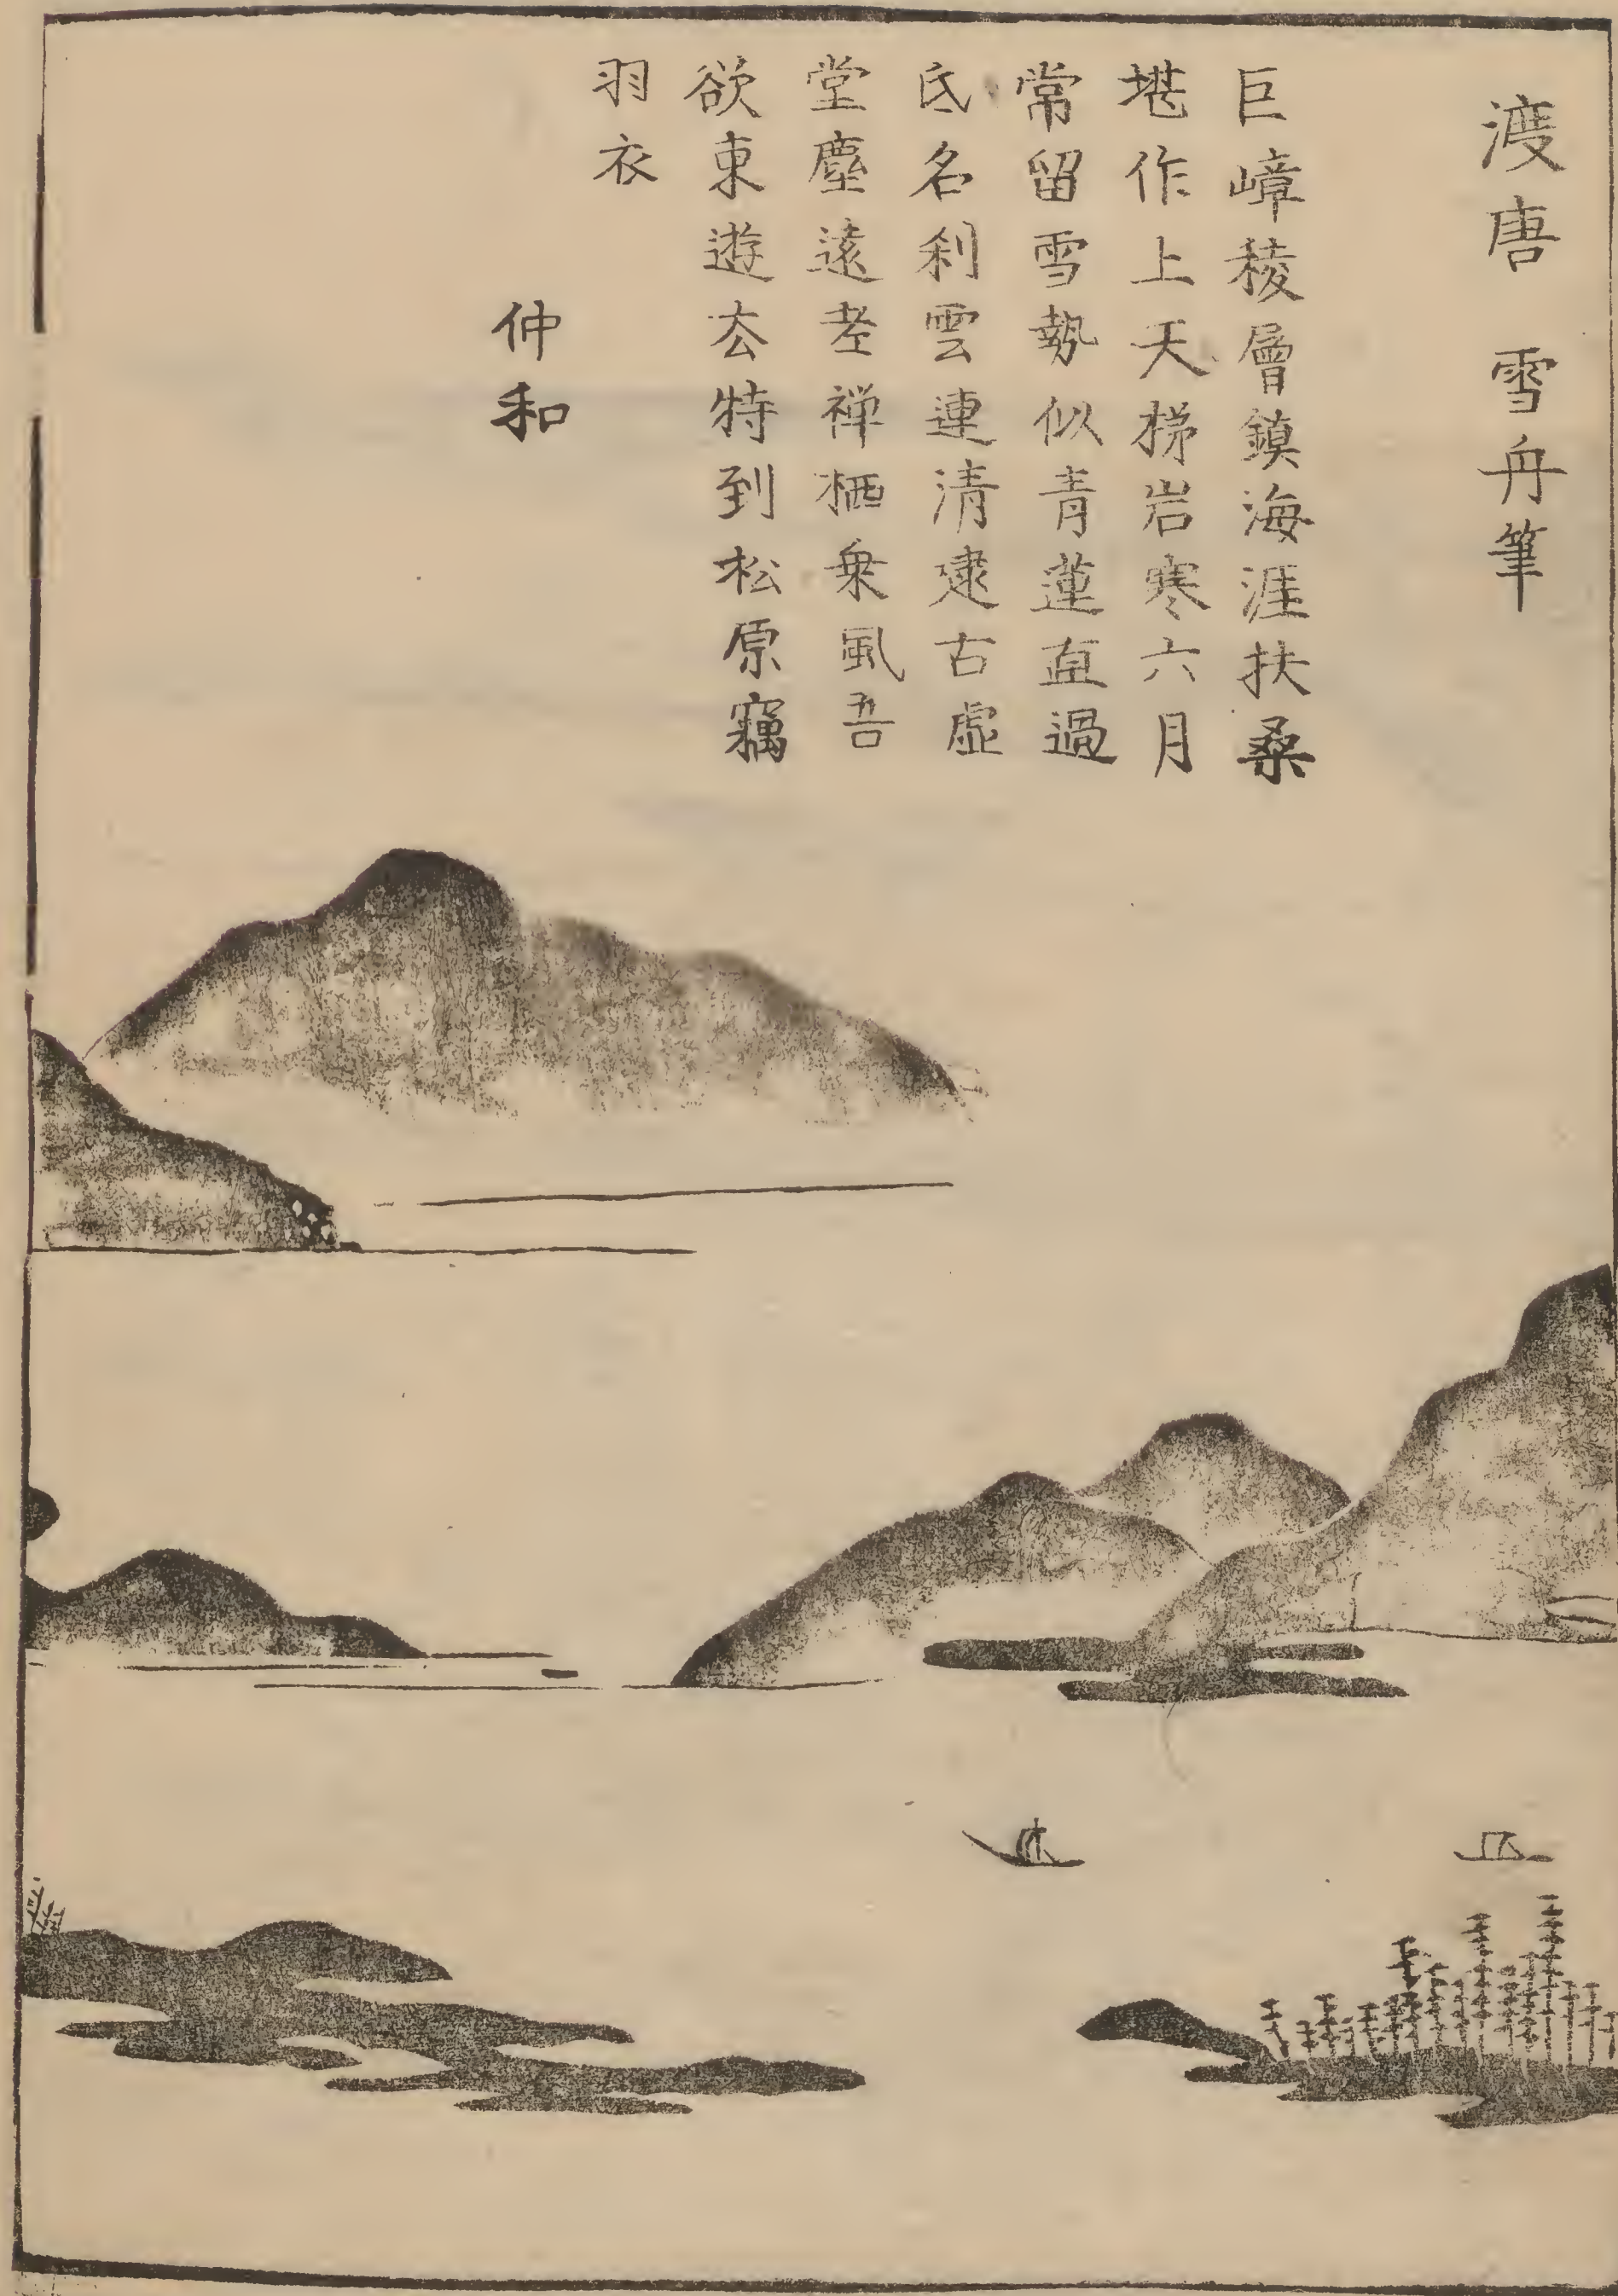 渡唐 雪舟筆
巨嶂稜層鎮海涯扶桑
堪作上天梯岩寒六月
常留雪勢似青蓮直過
氐名刹雲連清建古虚
堂塵遠老禅栖乗風吾
欲東遊去特到松原竊
羽衣
仲和